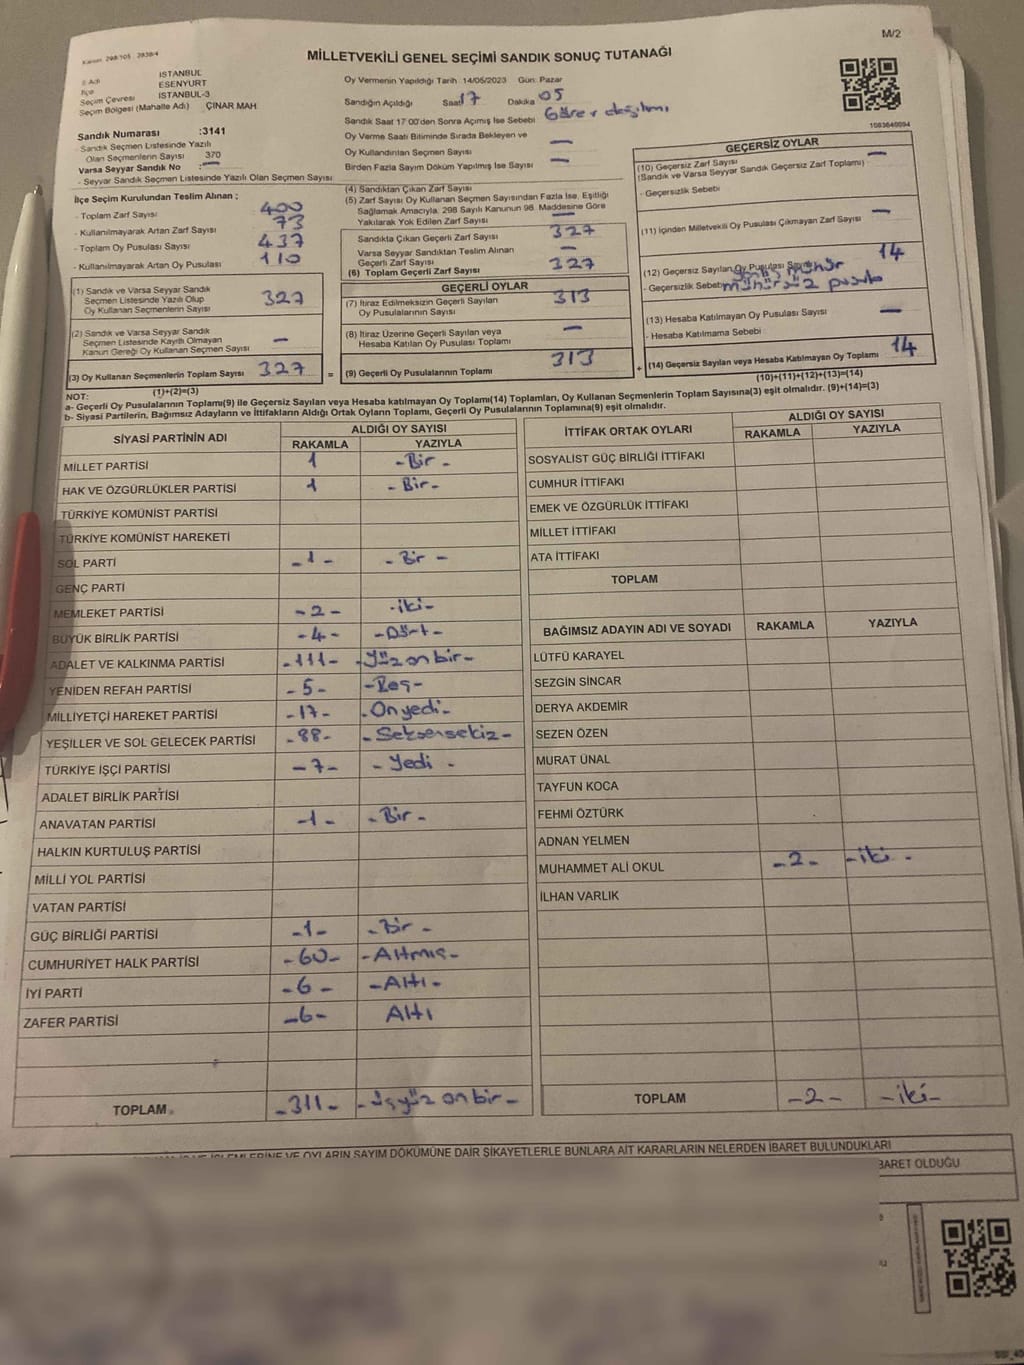 Kanun 298/105 2839/4
M/2
MİLLETVEKİLİ GENEL SEÇİMİ SANDIK SONUÇ TUTANAĞI
İl Adı İSTANBUL
İlçe ESENYURT
Seçim Çevresi İSTANBUL-3
Seçim Bölgesi (Mahalle Adı) ÇINAR MAH
Sandık Numarası :3141
- Sandık Seçmen Listesinde Yazılı
Olan Seçmenlerin Sayısı 370
Varsa Seyyar Sandık No :—
- Seyyar Sandık Seçmen Listesinde Yazılı Olan Seçmen Sayısı:
Oy Vermenin Yapıldığı Tarih 14/05/2023 Gün: Pazar
Sandığın Açıldığı Saat 17 Dakika 05
Sandık Saat 17:00'den Sonra Açımış İse Sebebi Görev dağılımı
Oy Verme Saati Bitiminde Sırada Bekleyen ve
Oy Kullandırılan Seçmen Sayısı —
Birden Fazla Sayım Döküm Yapılmış İse Sayısı —
1083640094
İlçe Seçim Kurulundan Teslim Alınan ;
- Toplam Zarf Sayısı 400
- Kullanılmayarak Artan Zarf Sayısı 73
- Toplam Oy Pusulası Sayısı 437
- Kullanılmayarak Artan Oy Pusulası 110
(1) Sandık ve Varsa Seyyar Sandık
Seçmen Listesinde Yazılı Olup
Oy Kullanan Seçmenlerin Sayısı 327
(2) Sandık ve Varsa Seyyar Sandık
Seçmen Listesinde Kayıtlı Olmayan
Kanun Gereği Oy Kullanan Seçmen Sayısı —
(3) Oy Kullanan Seçmenlerin Toplam Sayısı 327
(1)+(2)=(3)
(4) Sandıktan Çıkan Zarf Sayısı
(5) Zarf Sayısı Oy Kullanan Seçmen Sayısından Fazla İse, Eşitliği
Sağlamak Amacıyla, 298 Sayılı Kanunun 98. Maddesine Göre
Yakılarak Yok Edilen Zarf Sayısı —
Sandıkta Çıkan Geçerli Zarf Sayısı 327
Varsa Seyyar Sandıktan Teslim Alınan
Geçerli Zarf Sayısı —
(6) Toplam Geçerli Zarf Sayısı 327
GEÇERLİ OYLAR
(7) İtiraz Edilmeksizin Geçerli Sayılan
Oy Pusulalarının Sayısı 313
(8) İtiraz Üzerine Geçerli Sayılan veya
Hesaba Katılan Oy Pusulası Toplamı —
= (9) Geçerli Oy Pusulalarının Toplamı 313
GEÇERSİZ OYLAR
(10) Geçersiz Zarf Sayısı
(Sandık ve Varsa Seyyar Sandık Geçersiz Zarf Toplamı) —
- Geçersizlik Sebebi
(11) İçinden Milletvekili Oy Pusulası Çıkmayan Zarf Sayısı —
(12) Geçersiz Sayılan Oy Pusulası Sayısı 14
- Geçersizlik Sebebi mühür
mühürsüz pusula
(13) Hesaba Katılmayan Oy Pusulası Sayısı —
- Hesaba Katılmama Sebebi
+ (14) Geçersiz Sayılan veya Hesaba Katılmayan Oy Toplamı 14
(10)+(11)+(12)+(13)=(14)
NOT:
a- Geçerli Oy Pusulalarının Toplamı(9) ile Geçersiz Sayılan veya Hesaba katılmayan Oy Toplamı(14) Toplamları, Oy Kullanan Seçmenlerin Toplam Sayısına(3) eşit olmalıdır. (9)+(14)=(3)
b- Siyasi Partilerin, Bağımsız Adayların ve İttifakların Aldığı Ortak Oyların Toplamı, Geçerli Oy Pusulalarının Toplamına(9) eşit olmalıdır.
SİYASİ PARTİNİN ADI ALDIĞI OY SAYISI
RAKAMLA YAZIYLA
MİLLET PARTİSİ 1 -Bir-
HAK VE ÖZGÜRLÜKLER PARTİSİ 1 -Bir-
TÜRKİYE KOMÜNİST PARTİSİ
TÜRKİYE KOMÜNİST HAREKETİ
SOL PARTİ -1- -Bir-
GENÇ PARTİ
MEMLEKET PARTİSİ -2- -iki-
BÜYÜK BİRLİK PARTİSİ -4- -Dört-
ADALET VE KALKINMA PARTİSİ -111- -Yüz on bir-
YENİDEN REFAH PARTİSİ -5- -Beş-
MİLLİYETÇİ HAREKET PARTİSİ -17- -Onyedi-
YEŞİLLER VE SOL GELECEK PARTİSİ -88- -Seksensekiz-
TÜRKİYE İŞÇİ PARTİSİ -7- -Yedi-
ADALET BİRLİK PARTİSİ
ANAVATAN PARTİSİ -1- -Bir-
HALKIN KURTULUŞ PARTİSİ
MİLLİ YOL PARTİSİ
VATAN PARTİSİ
GÜÇ BİRLİĞİ PARTİSİ -1- -Bir-
CUMHURİYET HALK PARTİSİ -60- -Altmış-
İYİ PARTİ -6- -Altı-
ZAFER PARTİSİ -6- Altı
TOPLAM -311- -üçyüz on bir-
İTTİFAK ORTAK OYLARI ALDIĞI OY SAYISI
RAKAMLA YAZIYLA
SOSYALİST GÜÇ BİRLİĞİ İTTİFAKI
CUMHUR İTTİFAKI
EMEK VE ÖZGÜRLÜK İTTİFAKI
MİLLET İTTİFAKI
ATA İTTİFAKI
TOPLAM
BAĞIMSIZ ADAYIN ADI VE SOYADI RAKAMLA YAZIYLA
LÜTFÜ KARAYEL
SEZGİN SİNCAR
DERYA AKDEMİR
SEZEN ÖZEN
MURAT ÜNAL
TAYFUN KOCA
FEHMİ ÖZTÜRK
ADNAN YELMEN
MUHAMMET ALİ OKUL -2- -iki-
İLHAN VARLIK
TOPLAM -2- -iki-
İŞLEMLERİNE VE OYLARIN SAYIM DÖKÜMÜNE DAİR ŞİKAYETLERLE BUNLARA AİT KARARLARIN NELERDEN İBARET BULUNDUKLARI
BARET OLDUĞU